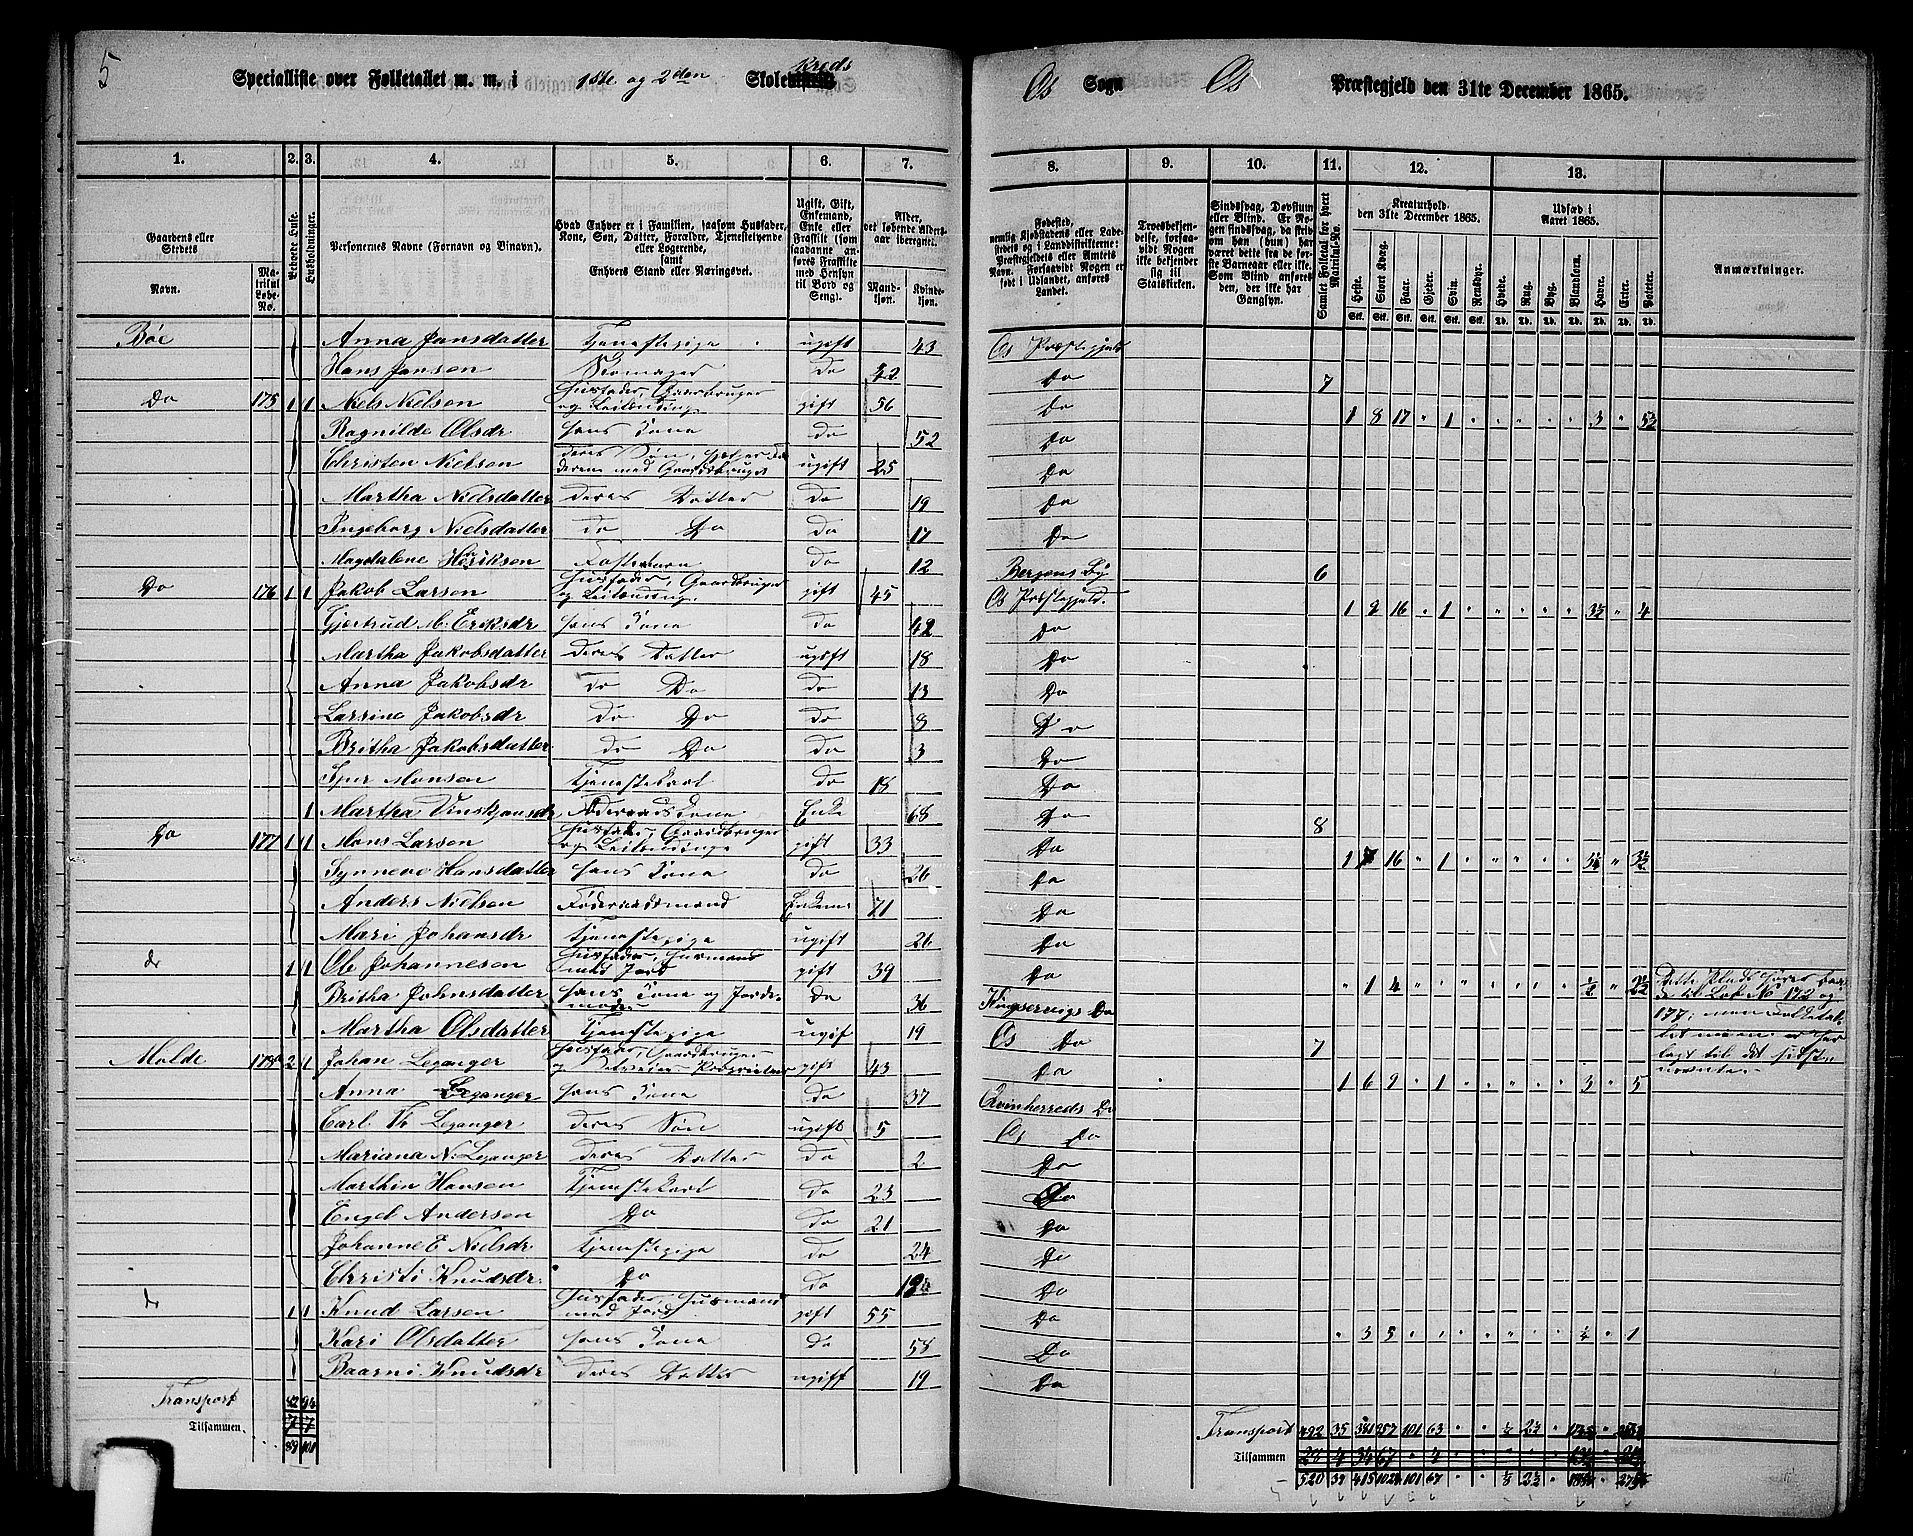 5
Specialliste over Folketallet m. m. i 1ste og 2den Skolekreds
Os Sogn Os Præstegjeld den 31te December 1865.
1. 2. 3. 4. 5. 6. 7. 8. 9. 10. 11. 12. 13.
Gaardens eller Stedets
Navn.
Matrikul Løbe-No.
Beboede Huse.
Husholdninger.
Personernes Navne (Fornavn og Binavn).
Hvad Enhver er i Familien, saasom Husfader, Kone, Søn, Datter, Forældre, Tjenestetyende eller Logerende, samt Enhvers Stand eller Næringsvei.
Ugift, Gift, Enkemand, Enke eller Fraskilt (som saadanne anføres Fraskilte med Hensyn til Bord og Seng).
Alder, det løbende Aldersaar iberegnet.
Mandkjøn.
Kvindekjøn.
Fødested, nemlig Kjøbstadens eller Ladestedets og i Landdistrikterne: Præstegjeldets eller Amtets Navn. Forsaavidt Nogen er født i Udlandet, anføres Landet.
Troesbekjendelse, forsaavidt Nogen ikke bekjender sig til Statskirken.
Sindssvag, Døvstum eller Blind. Er Nogen sindssvag, da skrives om han (hun) har været dette fra de første Barneaar eller ikke. Som Blind anføres den, der ikke har Gangsyn.
Samlet Folketal for hvert Matrikul-No.
Kreaturhold den 31te December 1865.
Heste. Stort Kvæg. Faar. Gjeder. Svin. Rensdyr.
Udsæd i Aaret 1865.
Hvede. Rug. Byg. Blandkorn. Havre. Erter. Poteter.
Anmærkninger.
Bøe Anna Jansdatter Tjenestepige ugift 43 Os Præstegjeld
Hans Jansen Skomager do 22 Do 7
Do 175 1 1 Niels Nielsen Husfader, Gaardbruger og Leilending gift 56 Do 1 8 17 " 1 " " " " " 3 "
Ragnilde Olsdr hans Kone do 52 Do
Christen Nielsen deres Søn, ugift 25 Do
Martha Nielsdatter deres Datter do 19 Do
Ingeborg Nielsdatter do Do do 17 Do
Magdalene Henriksen Fosterbarn do 12 Bergens By 6
Do 176 1 1 Jakob Larsen Husfader, Gaardbruger og Leilending gift 45 Os Præstegjeld. 1 9 16 " 1 " " " " " 3½ " 4
Gjertrud M. Eriksdr hans Kone do 42 Do
Martha Jakobsdatter deres Datter ugift 18 Do
Anna Jakobsdr do Do do 13 Do
Larsine Jakobsdr do Do do 8 Do
Britha Jakobsdatter do Do do 3 Do
Iver Monsen Tjenestekarl do 18 Do
1 Martha Føderaadskone Enke 68 Do 8
Do 177 1 1 Mons Larsen Husfader, Gaardbruger og Leilending gift 33 Do 1 7 16 " 1 " " " " " 3½ " 3½
Synneve Hansdatter hans Kone do 26 Do
Anders Nielsen Føderaadsmand Enkem. 71 Do
Mari Johansdr Tjenestepige ugift 26 Do
do 1 1 Ole Johannesen Husfader, Husmand med Jord gift 39 Do " 1 4 " " " " " " " ½ " 2½
Britha Johnsdatter hans Kone og Jordemoder Do 36 Kingservigs Do
Martha Olsdatter Tjenestepige ugif 19 Os Do 7
Dette Plads hører baade til Løb No 172 og 177, men Folketallet er her lagt til det sidstnævnte.
Molde 178 2 1 Johan Leganger Husfader, Gaardbruger gift 43 Do 1 6 9 " 1 " " " " " 3 " 5
Anna Leganger hans Kone do 37 Qvinherreds Do
Carl Leganger deres Søn ugift 5 Os Do
Mariana N. Leganger deres Datter do 2 Do
Marthin Hansen Tjenestekarl do 23 Do
Engel Andersen Do do 21 Do
Johanne E Nielsdr Tjenestepige do 24 Do
Christi Knudsdr. Do do Do
do 1 1 Knud Larsen Husfader, Husmand med Jord gift 55 Do " 3 5 " " " " " " " ½ " 1
Kari Olsdatter hans Kone do 58 Do
Baarni Knudsdr deres Datter ugift 19 Do
Transport 82 94
Tilsammen 7 7
89 101
Transport 492 35 381 957 101 63 " " ½ 2½ "
Tilsammen 28 4 34 67 " 4
520 39 415 1024 101 67 " " ½ 2½ "